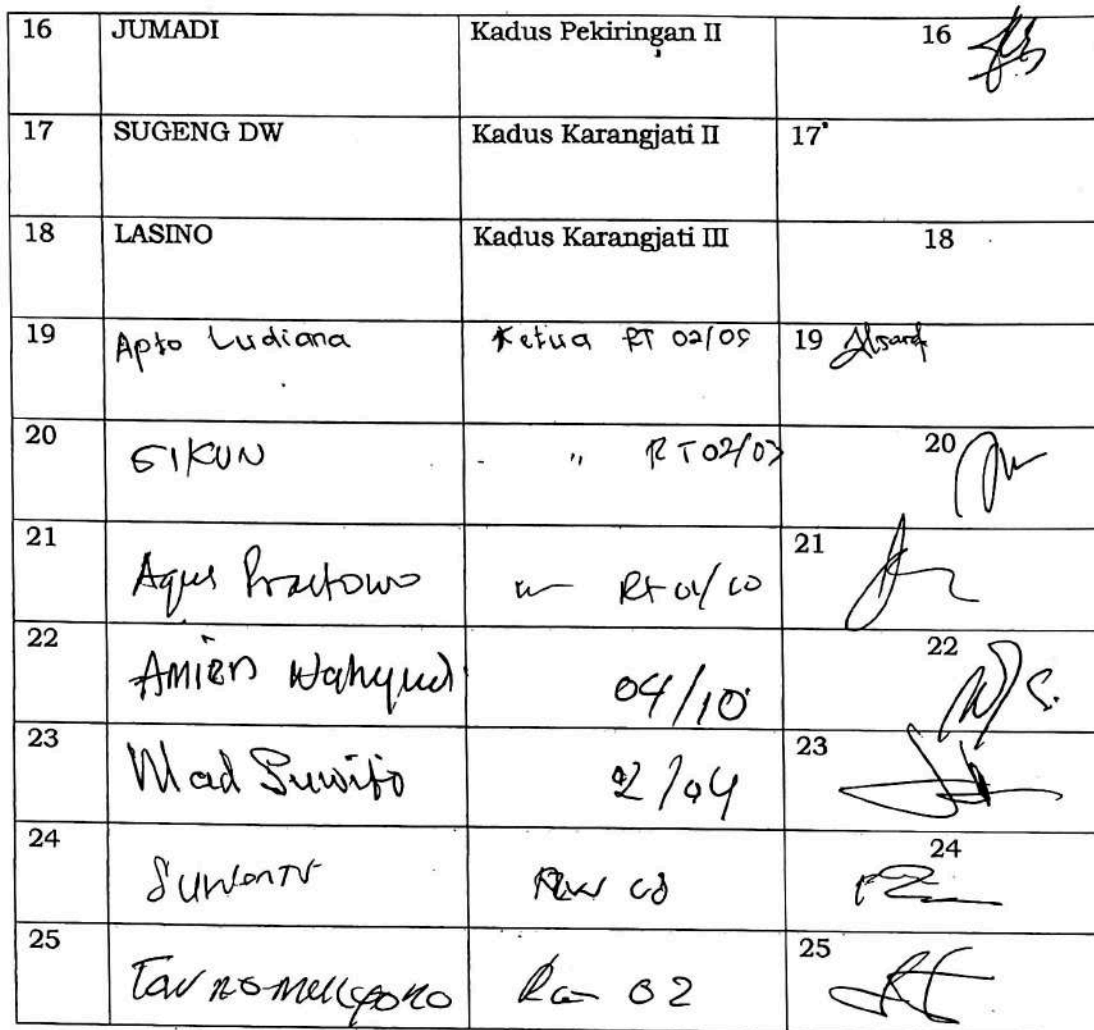 16 JUMADI Kadus Pekiringan II 16
17 SUGENG DW Kadus Karangjati II 17
18 LASINO Kadus Karangjati III 18
19 Apto Ludiana Ketua RT 02/05 19
20 SIKUN - " RT 02/03 20
21 Agus Prastowo RT 01/10 21
22 AMIEN Wahyudi 04/10 22
23 Mad Suwito 2/04 23
24 RW 08 24
25 02 25